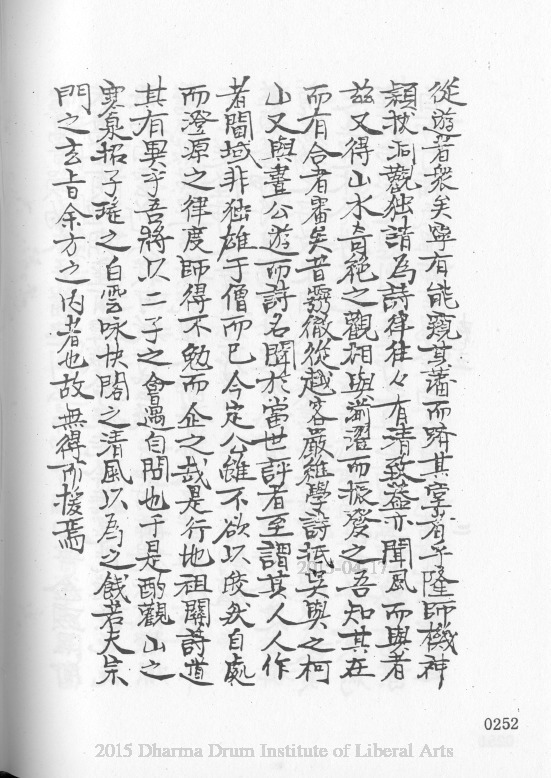 從遊者眾矣寧有能窺其藩而躋其堂者乎隆師機神
穎秋洞觀独詣為詩律往々有清致葢亦聞風而與者
茲又得山水奇絶之觀相與漸濯而振發之吾知其在
而有合者審矣昔靈徹從越客嚴維學詩抵吳興之柯
山又與晝公遊而詩名聞於當世評者至謂其人人作
者閫域非独雄于僧而已今定公雖不欲以皎然自處
而澄源之律度師得不勉而企之哉是行也祖關詩道
其有異乎吾將以二子之會遇自問也于是酌觀山之
寒泉招子瑤之白雲咏快閣之清風以為之餞若夫宗
門之玄旨余方之内者也故無得而援焉
0252
2015-04-17
2015 Dharma Drum Institute of Liberal Arts